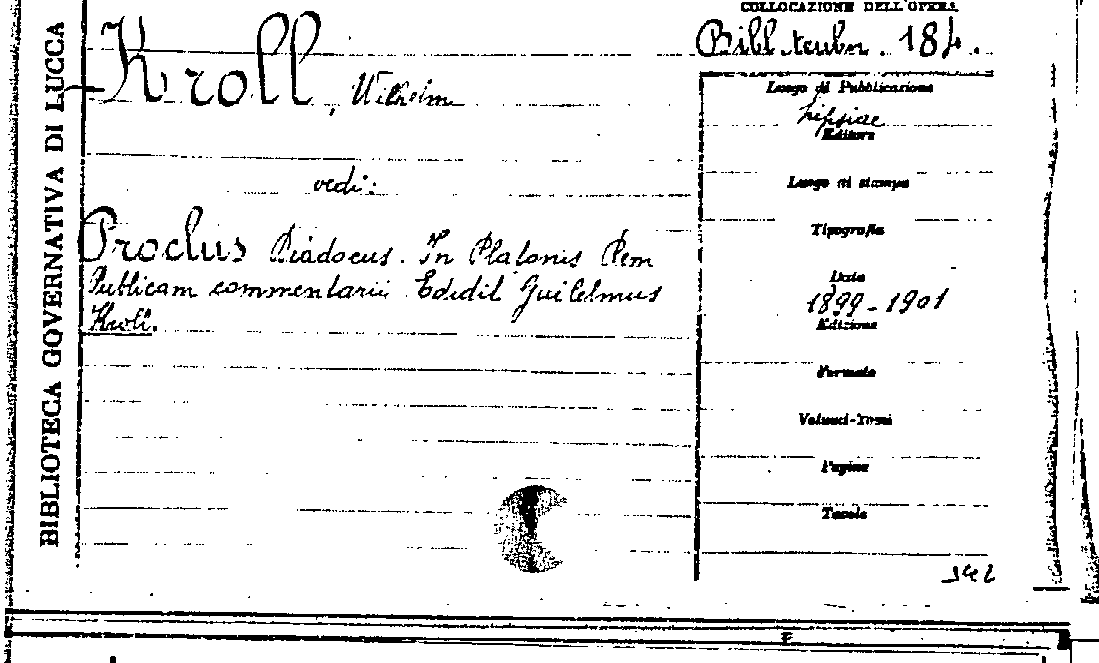 BIBLIOTECA GOVERNATIVA DI LUCCA
COLLOCAZIONE DELL'OPERA
Bibl. teubn. 184.
Kroll, Wilhelm
vedi:
Proclus Diadocus. In Platonis Rem
Publicam commentarii Edidit Guilelmus
Kroll.
Luogo di Pubblicazione
Lipsiae
Editore
Luogo di stampa
Tipografia
Data
1899-1901
Edizione
Formato
Volumi-Tomi
Pagine
Tavole